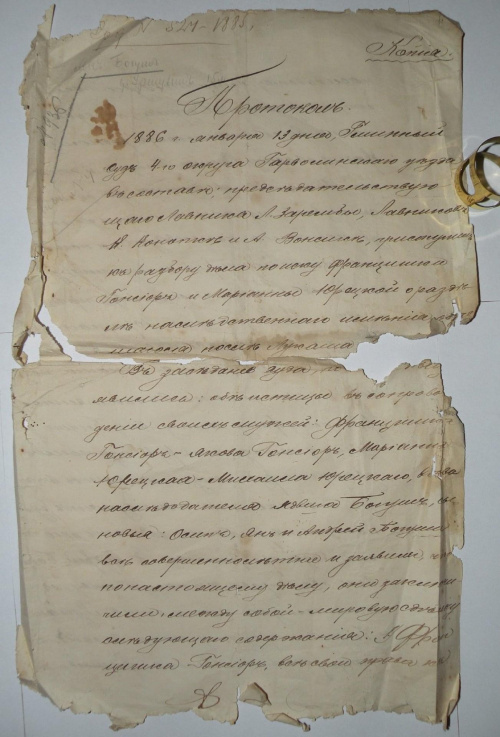 N 527-1885.
Копія.
Протоколъ.
1886 г. января 13 дня, Гминный
судъ 4-го округа Гарволинскаго уѣзда
въ составѣ: предсѣдательствую
щаго Лавника Л. Зарембы, Лавниковъ
и А. приступилъ
къ разбору дѣла по иску Францишки
Гонсіоръ и Маріанны Юрецкой о раздѣ
лѣ наслѣдственнаго имѣнія
послѣ Лукаша
Въ засѣданіе суда
явились: обѣ истицы въ сопрово
жденіи своихъ мужей: Францишка
Гонсіоръ - Якова Гонсіоръ, Маріанна
Юрецкая - Михаила Юрецкаго, вдова
наслѣдодателя Богушъ, сы
новья: Осипъ, Янъ и Андрей Богуши
всѣ совершеннолѣтніе и заявили, что
по настоящему дѣлу, они заклю
чили между собой мировую сдѣлку
слѣдующаго содержанія: Фран
цишка Гонсіоръ,